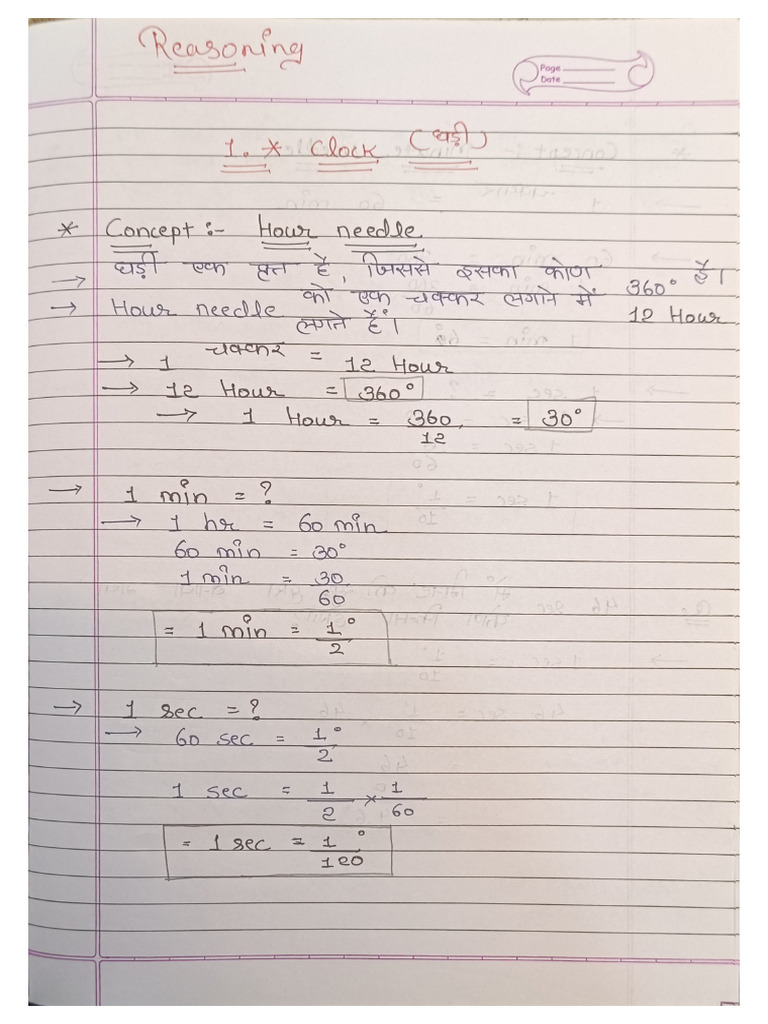 Reasoning
Page
Date
1. * Clock (घड़ी)
* Concept :- Hour needle
→ घड़ी एक वृत्त है, जिससे इसका कोण 360° है।
→ Hour needle को एक चक्कर लगाने में 12 Hour
लगते हैं।
→ 1 चक्कर = 12 Hour
→ 12 Hour = 360°
→ 1 Hour = 360/12 = 30°
→ 1 min = ?
→ 1 hr = 60 min
60 min = 30°
1 min = 30/60
= 1 min = 1°/2
→ 1 sec = ?
→ 60 sec = 1°/2
1 sec = 1/2 × 1/60
= 1 sec = 1°/120